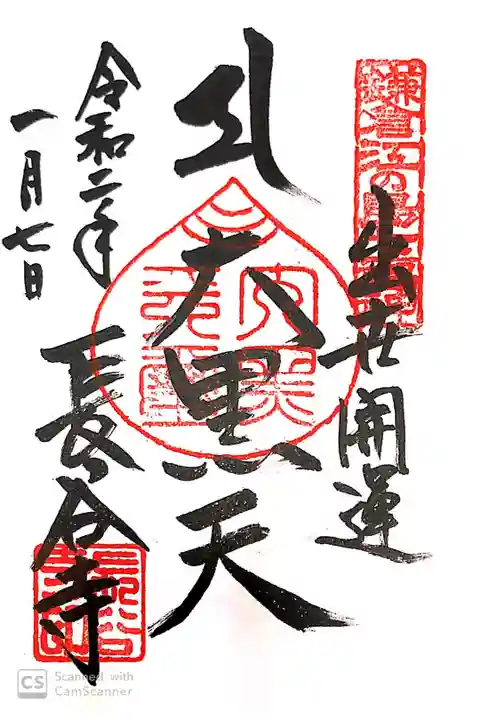 鎌倉江の島七福神
出世開運
大黒天
長谷寺
令和二年
一月七日
長谷寺
CS Scanned with
CamScanner